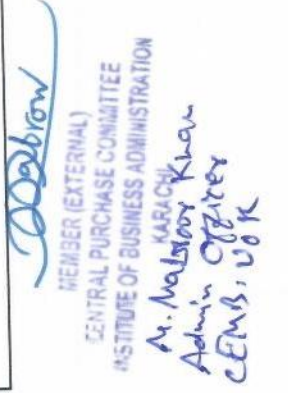 MEMBER (EXTERNAL)
CENTRAL PURCHASE COMMITTEE
INSTITUTE OF BUSINESS ADMINISTRATION
KARACHI
M. Khan
Admin Officer
CEMB, UOK